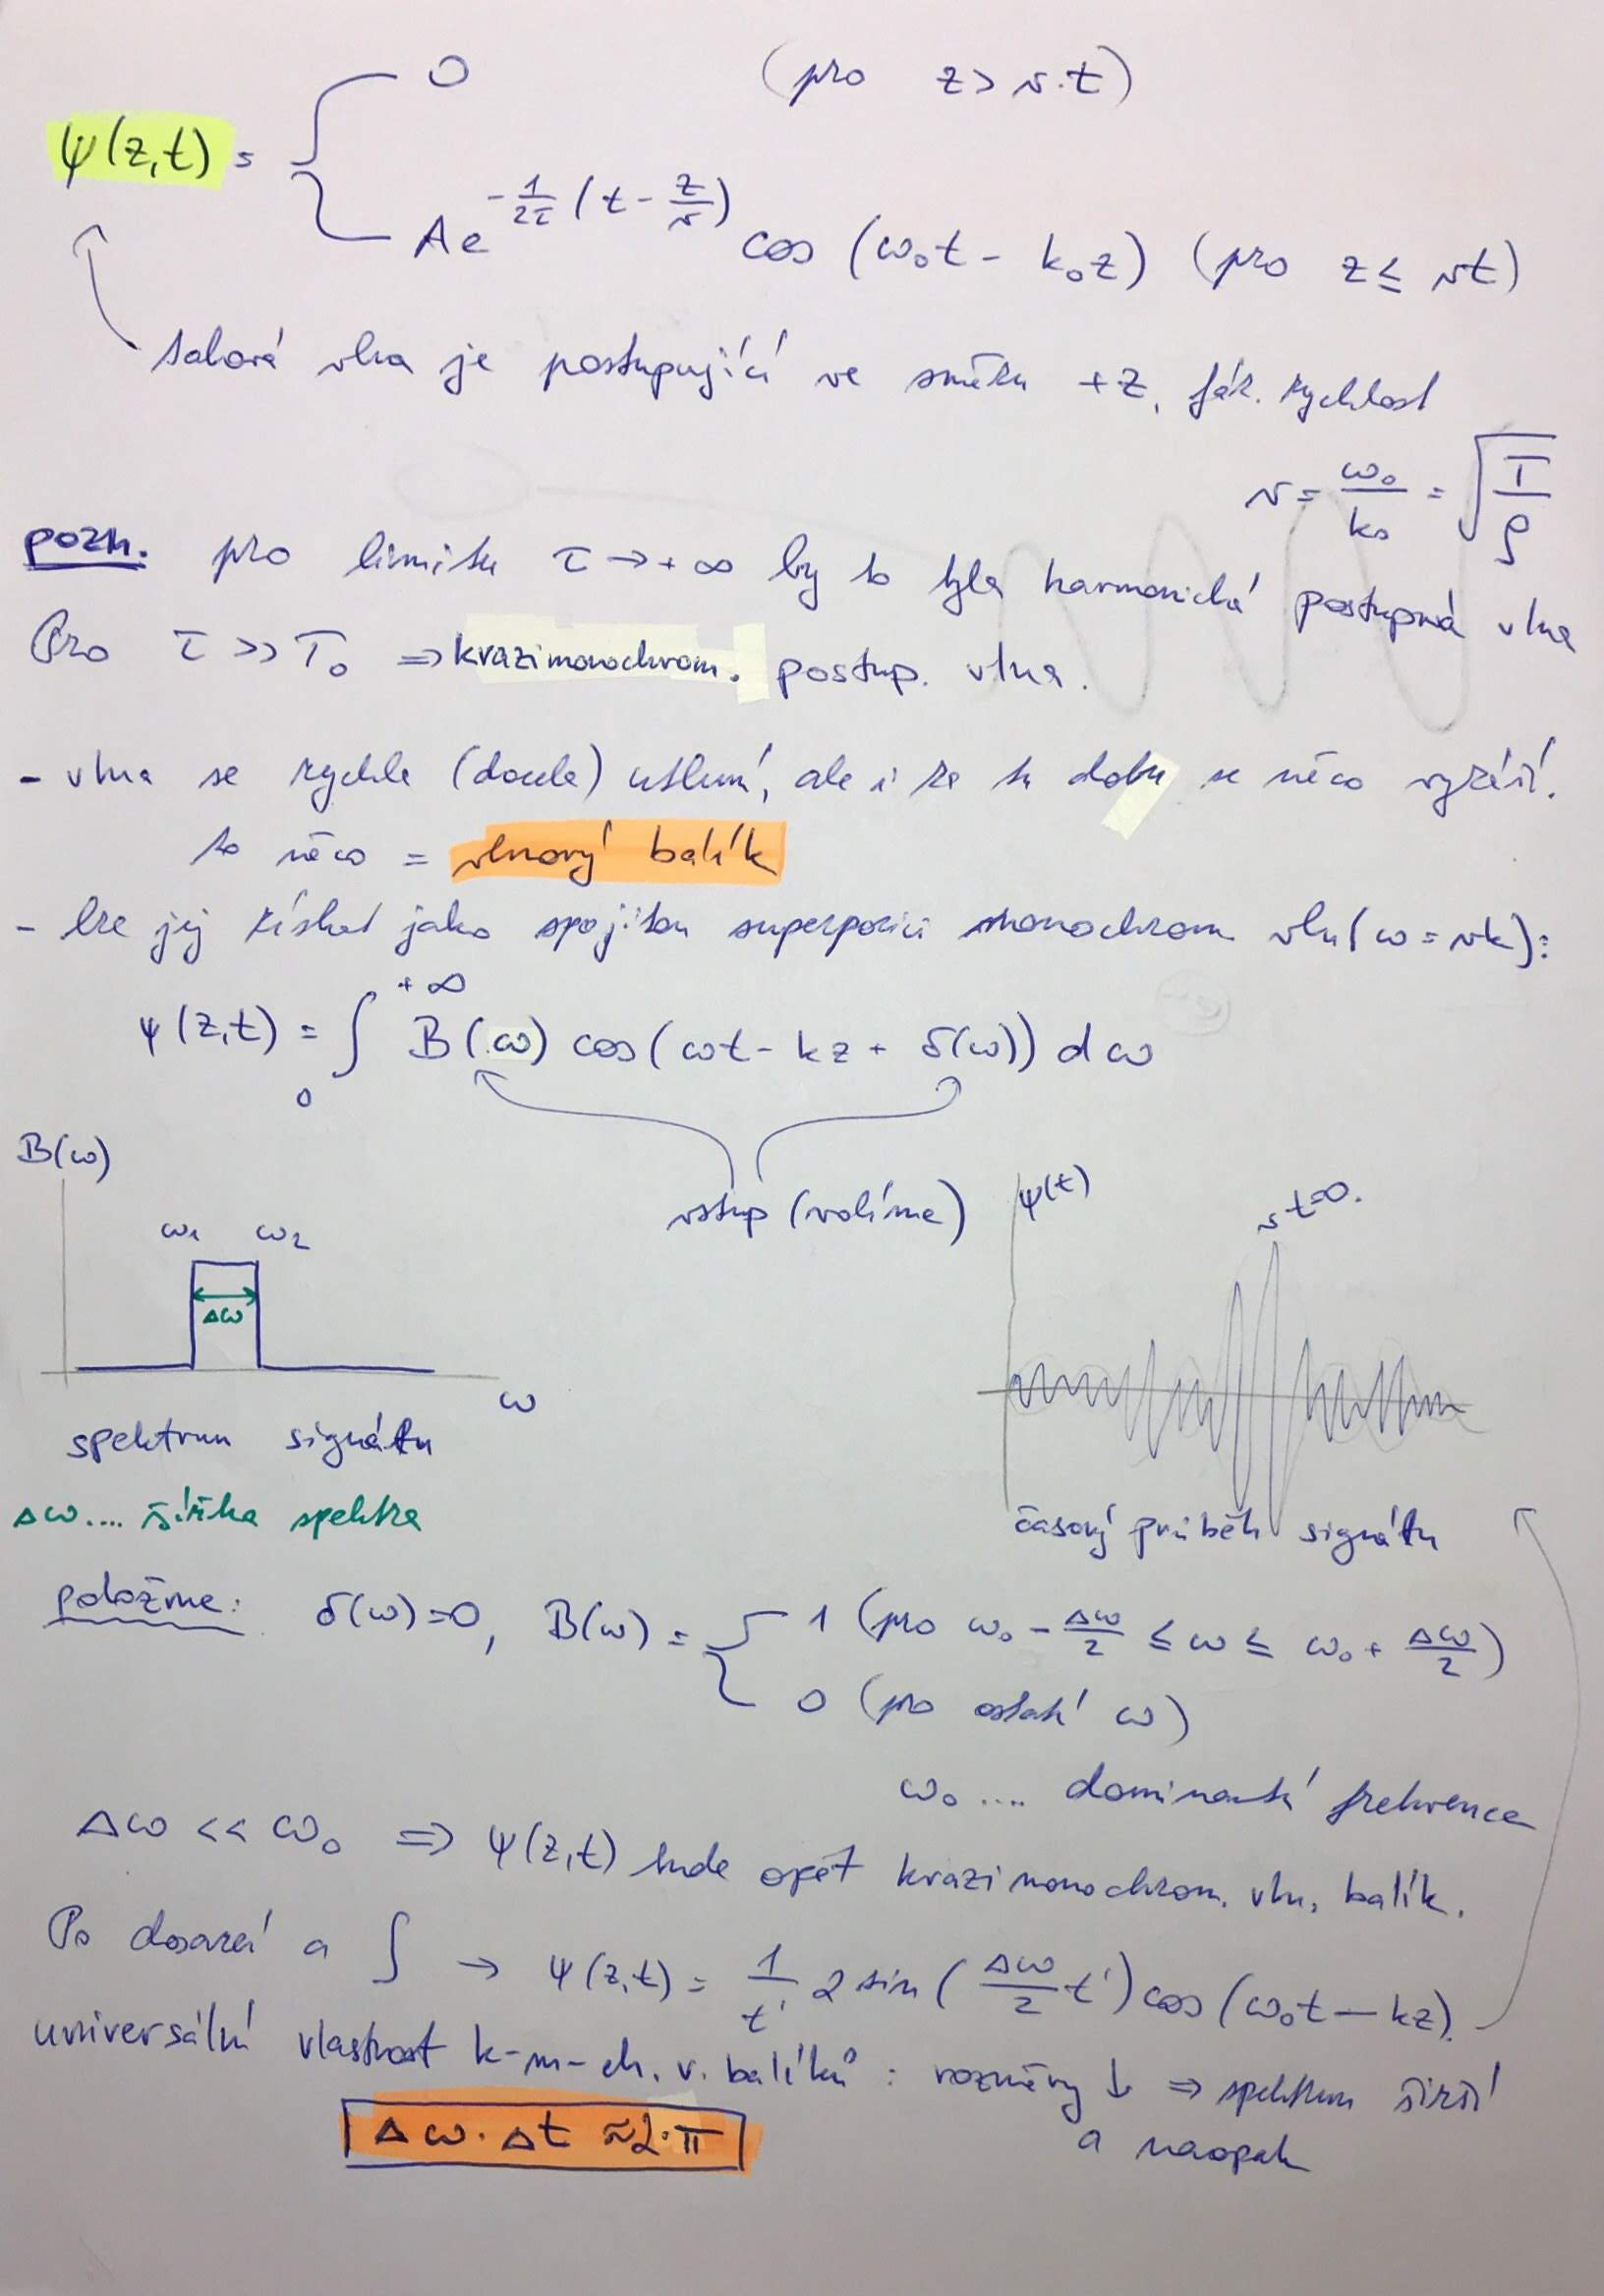 ψ(z,t) = { 0 (pro z > v·t)
A e^{-\frac{1}{2τ}(t - \frac{z}{v})} cos (ω₀t - k₀z) (pro z ≤ vt)
taková vlna je postupující ve směru +z, fáz. rychlost
v = \frac{ω₀}{k₀} = \sqrt{\frac{T}{ρ}}
pozn. pro limitu τ → +∞ by to byla harmonická postupná vlna
Pro τ >> T₀ ⇒ kvazimonochrom. postup. vlna.
- vlna se rychle (docela) utlumí, ale i za tu dobu se něco vyzáří.
to něco = vlnový balík
- lze jej získat jako spojitou superpozici monochrom vln (ω = vk):
ψ(z,t) = ∫_0^{+∞} B(ω) cos(ωt - kz + δ(ω)) dω
vstup (volíme)
B(ω)
ω₁ ω₂
Δω
ω
spektrum signálu
Δω.... šířka spektra
ψ(t)
t=0.
časový průběh signálu
položme: δ(ω)=0, B(ω) = { 1 (pro ω₀ - \frac{Δω}{2} ≤ ω ≤ ω₀ + \frac{Δω}{2})
0 (pro ostatní ω)
ω₀ .... dominantní frekvence
Δω << ω₀ ⇒ ψ(z,t) bude opět kvazimonochrom. vln. balík.
Po dosazení a ∫ → ψ(z,t) = \frac{1}{t'} 2 sin(\frac{Δω}{2} t') cos(ω₀t - kz).
universální vlastnost k-m-ch. v. balíků : rozměry ↓ ⇒ spektrum širší
a naopak
Δω·Δt ≈ 2·π